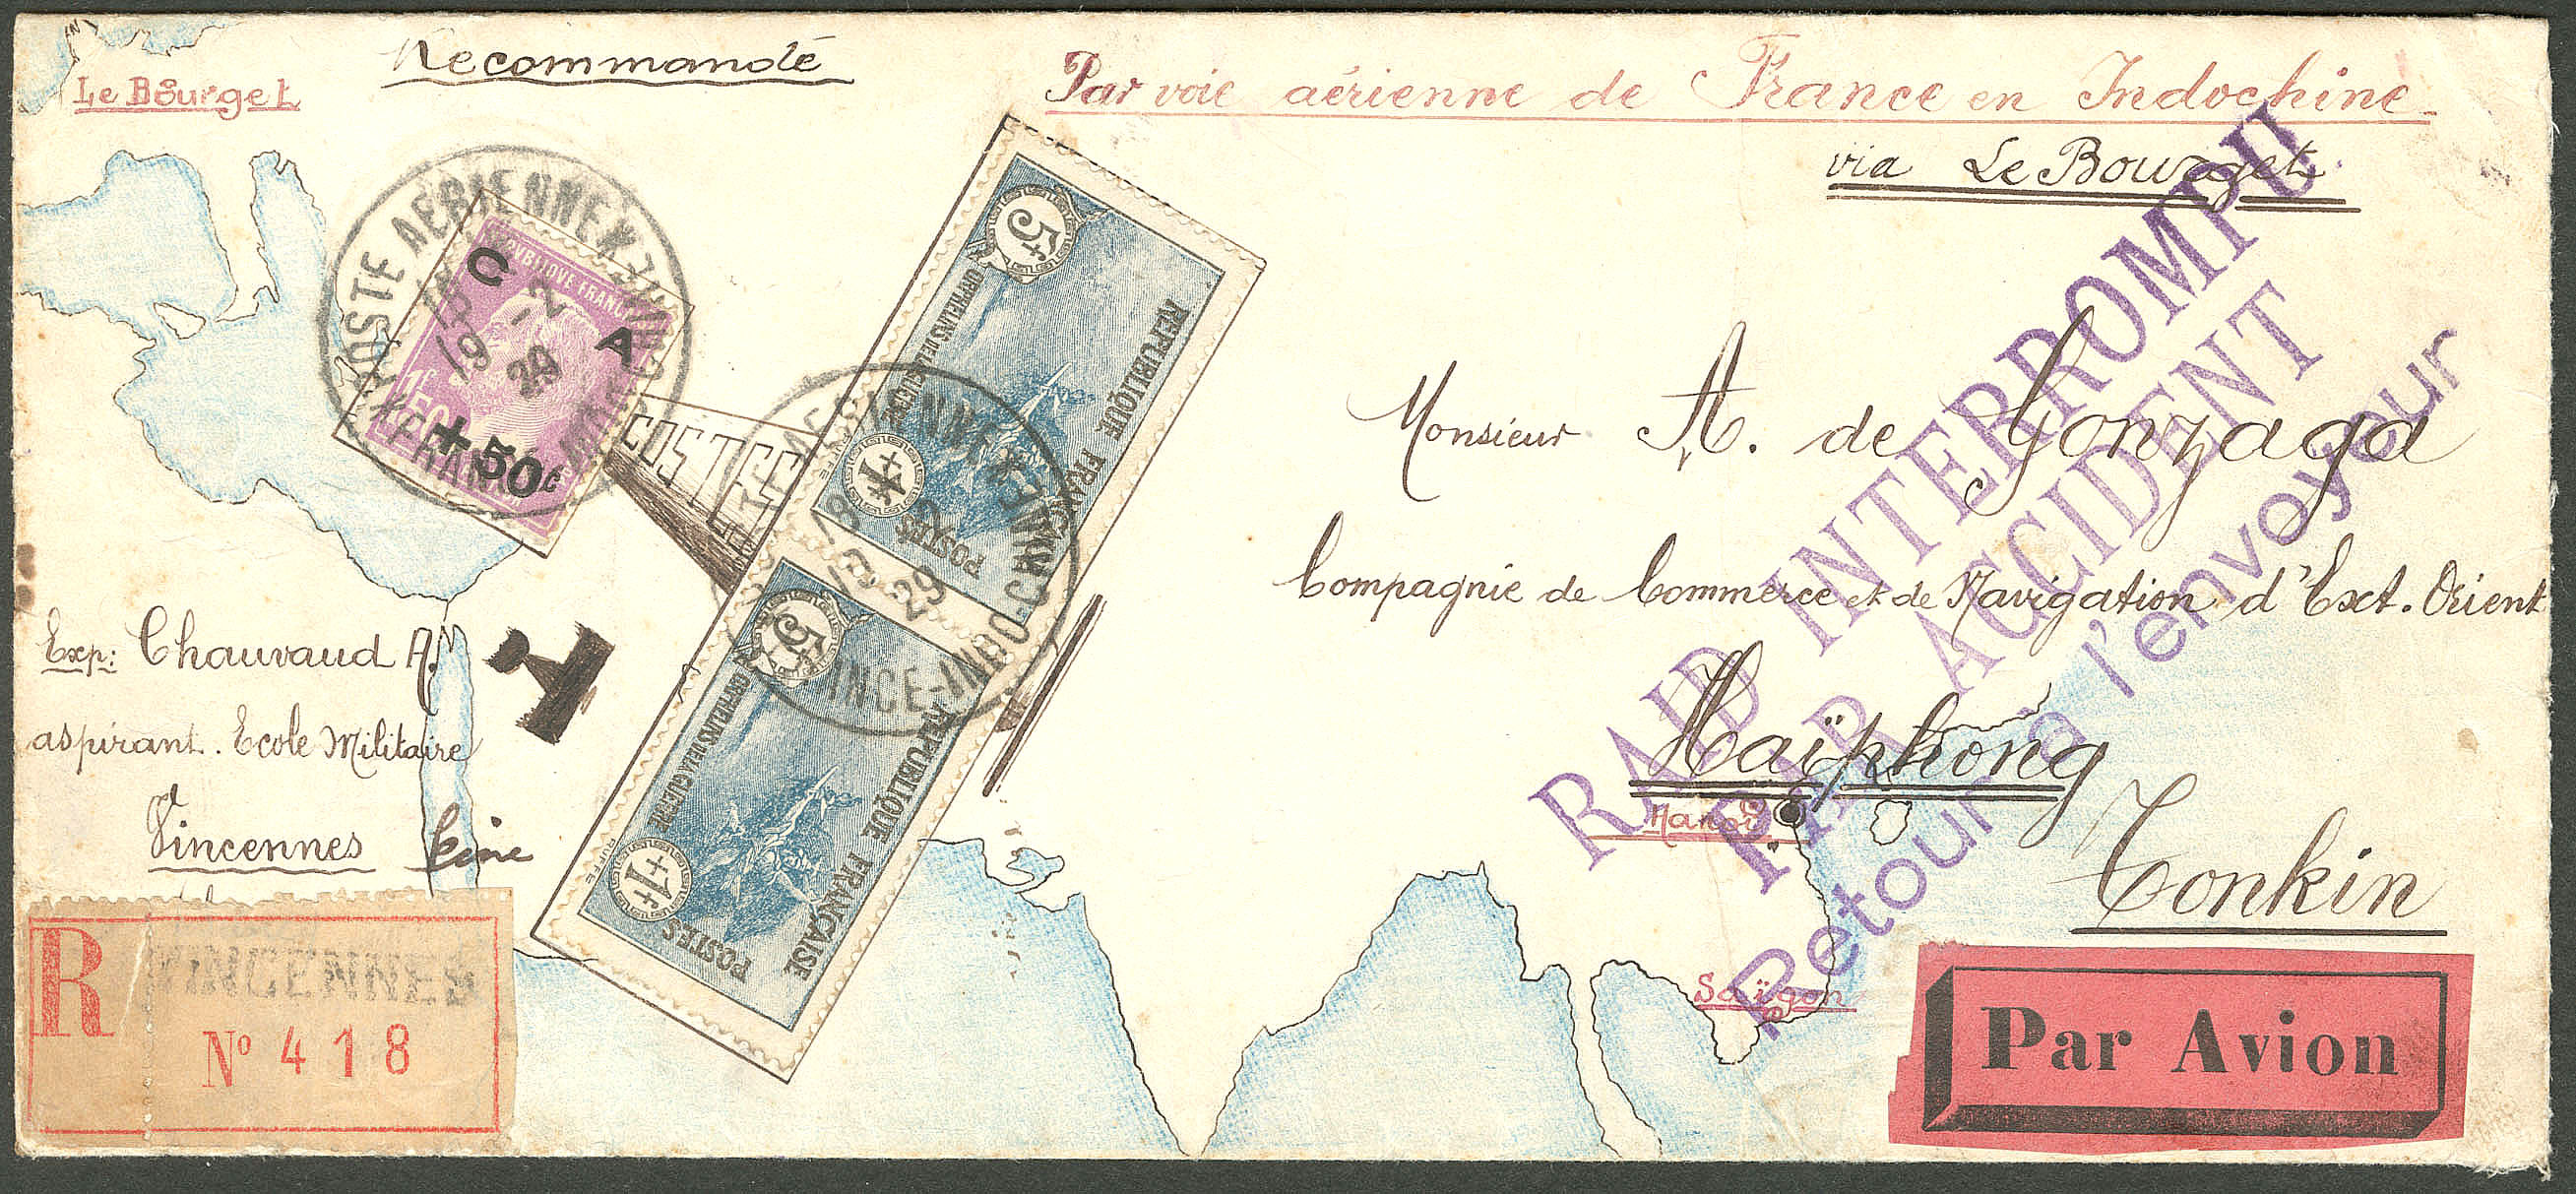 Recommandé
Le Bourget
Par voie aérienne de France en Indochine
via Le Bourget
POSTE AERIENNE
15 -2
19 29
FRANCE
RÉPUBLIQUE FRANÇAISE
C
A
1F50
+50c
COSTE
5F
ORPHELINS DE LA GUERRE
+1F
RÉPUBLIQUE FRANÇAISE
POSTES
AERIENNE
18
29
FRANCE-INDO-C
5F
ORPHELINS DE LA GUERRE
+1F
RUFFE
RÉPUBLIQUE FRANÇAISE
POSTES
RAID INTERROMPU
PAR ACCIDENT
Retour à l'envoyeur
Monsieur A. de Gonzaga
Compagnie de Commerce et de Navigation d'Ext. Orient
Haïphong
Tonkin
Hanoï
Saïgon
Exp: Chauvaud A.
aspirant. Ecole Militaire
Vincennes
R
VINCENNES
No 418
Par Avion